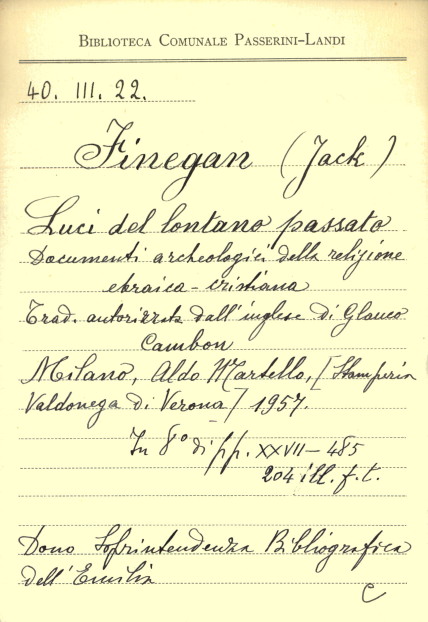 BIBLIOTECA COMUNALE PASSERINI-LANDI
40. III. 22.
Finegan (Jack)
Luci del lontano passato
Documenti archeologici della religione
ebraica-cristiana
Trad. autorizzata dall'inglese di Glauco
Cambon
Milano, Aldo Martello, [Stamperia
Valdonega di Verona] 1957.
In 8° di pp. XXVII-485
204 ill. f. t.
Dono Soprintendenza Bibliografica
dell'Emilia
C